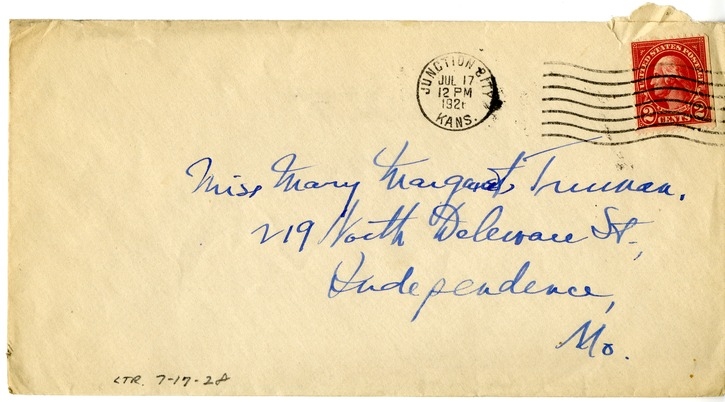 JUNCTION CITY
JUL 17
12 PM
192
KANS.
UNITED STATES POSTAGE
2 CENTS 2
Miss Mary Margaret Truman.
219 North Deleware St.,
Independence,
Mo.
LTR. 7-17-28